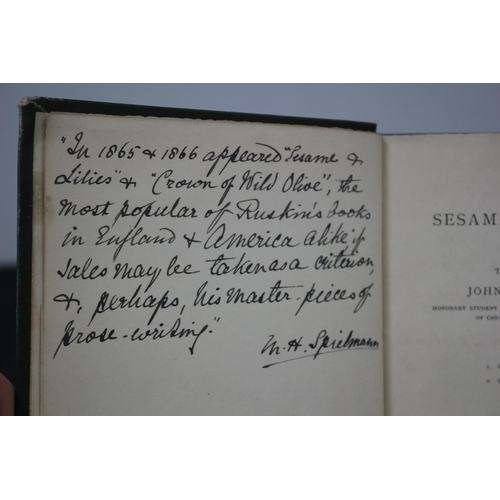 "In 1865 & 1866 appeared "Sesame &
Lilies" & "Crown of Wild Olive", the
most popular of Ruskin's books
in England & America alike if
sales may be taken as a criterion,
&, perhaps, his master-pieces of
prose-writing."
M. H. Spielmann
SESAM
JOHN
HONORARY STUDENT